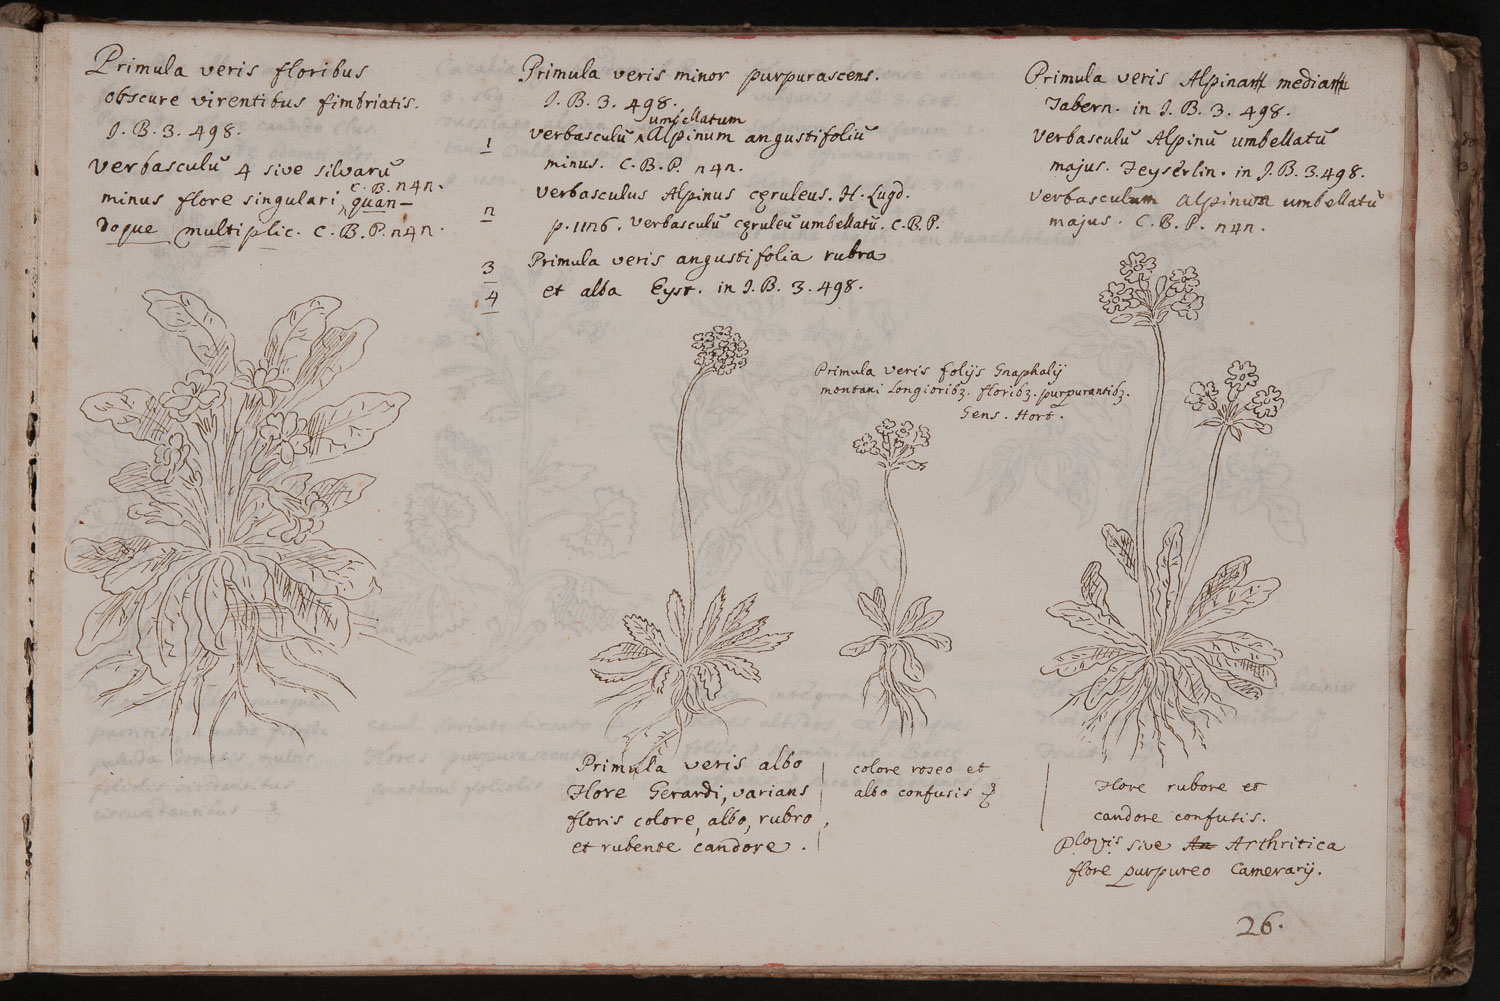 Primula veris floribus
obscure virentibus fimbriatis.
J. B. 3. 498.
verbasculũ 4 sive silvarũ
minus flore singulari, C. B. n4n. quan-
doque multiplic. C. B. P. n4n.
Primula veris minor purpurascens.
J. B. 3. 498.
umbellatum
1 verbasculũ Alpinum angustifoliũ
minus. C. B. P. n4n.
n verbasculus Alpinus cęruleus. H. Lugd.
p. 11n6. verbasculũ cęruleũ umbellatũ. C. B. P.
3 Primula veris angustifolia rubra
4 et alba Eyst. in J. B. 3. 498.
Primula veris Alpina media
Tabern. in J. B. 3. 498.
verbasculũ Alpinũ umbellatũ
majus. Teyserlin. in J. B. 3. 498.
verbasculum Alpinum umbellatũ
majus. C. B. P. n4n.
Primula veris folijs Gnaphalij
montani Longioribꝫ. floribꝫ. purpurantibꝫ.
Gens. Hort.
Primula veris albo
flore Gerardi, varians
floris colore, albo, rubro,
et rubente candore.
colore roseo et
albo confusis
flore rubore et
candore confusis.
sive Arthritica
flore purpureo Camerarij.
26.